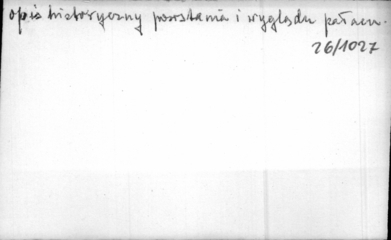 opis historyczny powstania i wyglądu pałacu.
26/1027